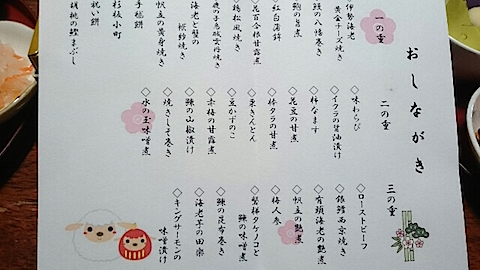 おしながき
一の重
伊勢海老
黄金チーズ焼き
鰻の八幡巻き
鮑の旨煮
紅白蒲鉾
花百合根甘露煮
鶏松風焼き
数の子鳥賊雲丹焼き
海老と蟹の
袱紗焼き
帆立の黄身焼き
手毬餅
杉板小町
祝い餅
胡桃の鰹まぶし
二の重
◇味わらび
◇イクラの醤油漬け
◇柿なます
◇花豆の甘煮
◇棒タラの甘煮
◇栗きんとん
◇豆かずのこ
◇赤梅の甘露煮
◇鰊の山椒漬け
◇焼きしそ巻き
◇水の玉味噌煮
三の重
◇ローストビーフ
◇銀鱈西京焼き
◇有頭海老の艶煮
◇帆立の艶煮
◇梅人参
◇磐梯タケノコと
鰊の味噌煮
◇鰊の昆布巻き
◇海老芋の田楽
◇キングサーモンの
味噌漬け